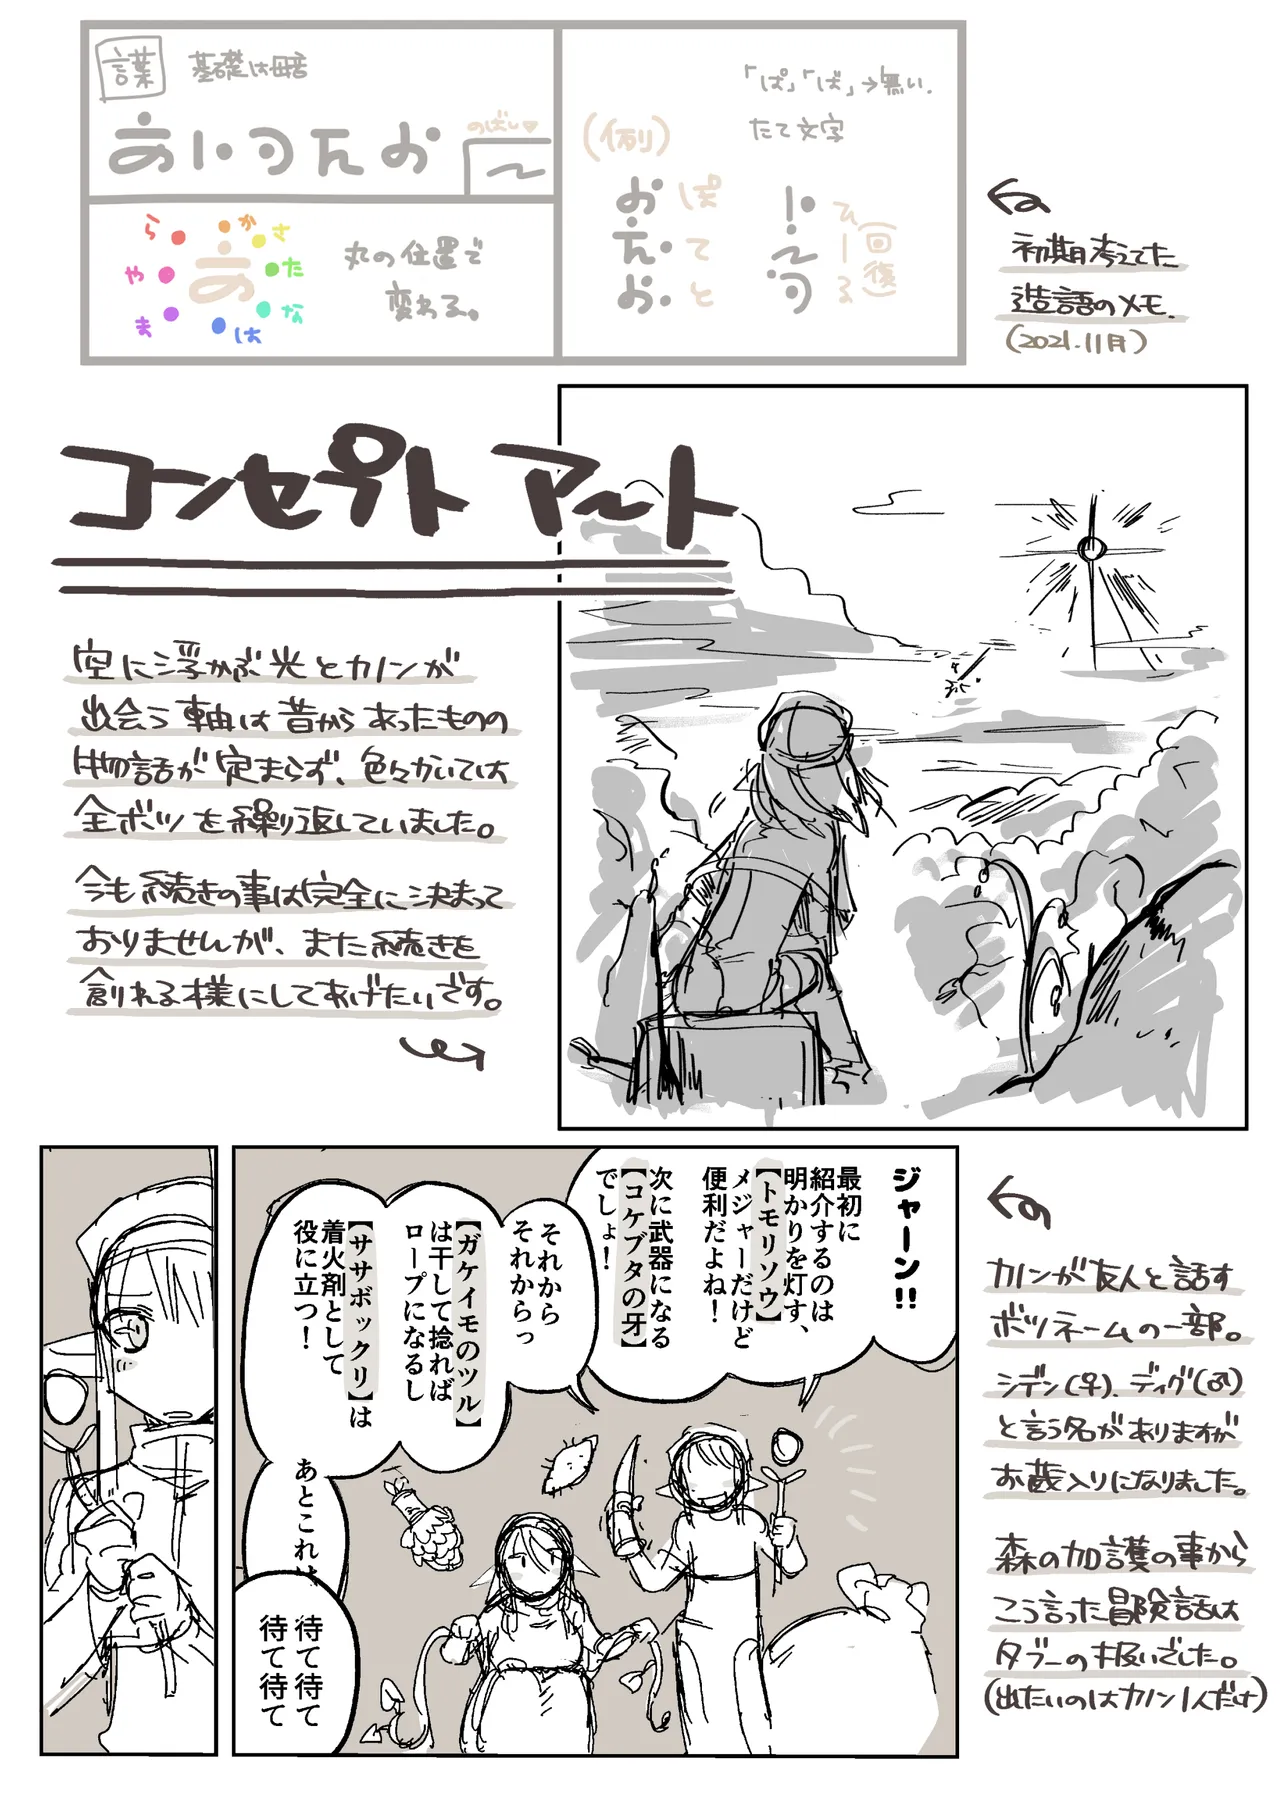 言葉
基礎は母音
のばし♡
ー
ら
か
さ
た
な
は
ま
や
丸の位置で
変わる。
「ぱ」「ば」→無い。
たて文字
(例)
ぱ
て
と
ひ
ー
る
(回復)
初期考えてた
造語のメモ.
(2021.11月)
コンセプトアート
空に浮かぶ光とカノンが
出会う軸は昔からあったものの
物語が定まらず、色々かいては
全ボツを繰り返していました。
今も続きの事は完全に決まって
おりませんが、また続きを
創れる様にしてあげたいです。
ジャーン!!
最初に
紹介するのは
明かりを灯す、
【トモリソウ】
メジャーだけど
便利だよね!
次に武器になる
【コケブタの牙】
でしょ!
それから
それからっ
【ガケイモのツル】
は干して捻れば
ロープになるし
【ササボックリ】は
着火剤として
役に立つ!
あとこれは、
待て待て
待て待て
カノンが友人と話す
ボツネームの一部。
シデン(♀)、ディグ(♂)
と言う名がありますが
お蔵入りになりました。
森の加護の事から
こう言った冒険話は
タブーの扱いでした。
(出たいのはカノン1人だけ)